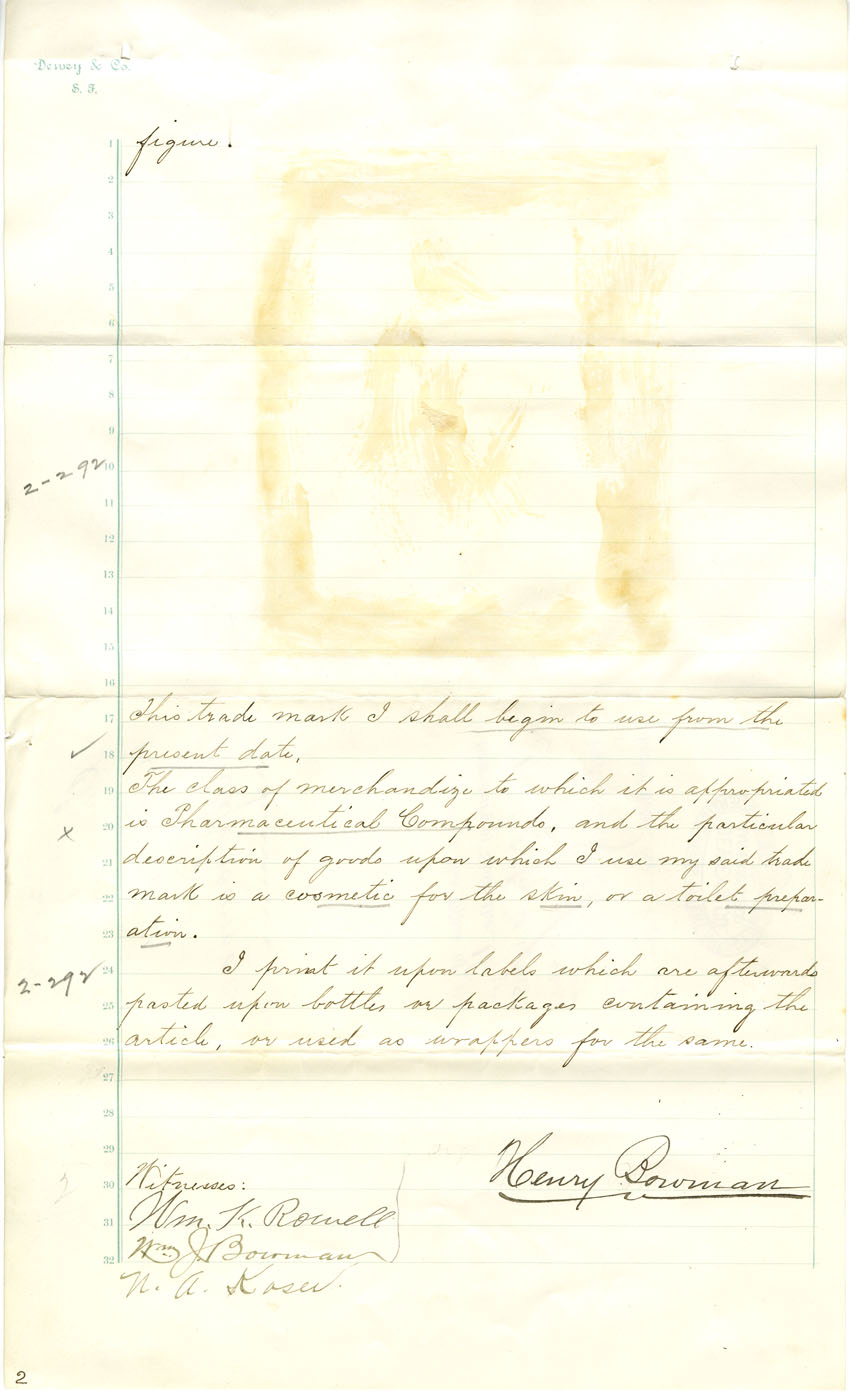 Dewey & Co.
S. F.
1 figure.
2
3
4
5
6
7
8
9
2-292
10
11
12
13
14
15
16
17 This trade mark I shall begin to use from the
18 present date,
19 The class of merchandize to which it is appropriated
20 is Pharmaceutical Compounds, and the particular
21 description of goods upon which I use my said trade
22 mark is a cosmetic for the skin, or a toilet prepar-
23 ation.
24 I print it upon labels which are afterwards
2-292
25 pasted upon bottles or packages containing the
26 article, or used as wrappers for the same.
27
28
29
Henry Bowman
30 Witnesses:
31 Wm. K. Rowell
32 Wm J. Bowman
N. A. Koser.
2